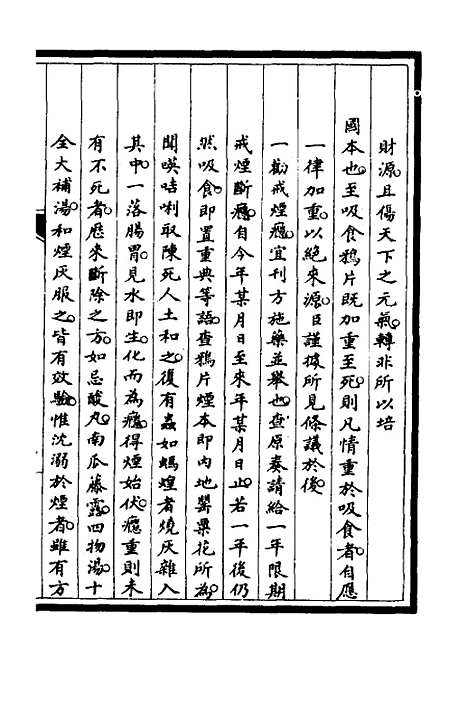 財源且傷天下之元氣轉非所以培
國本也至吸食鴉片既加重至死則凡情重於吸食者自應
一律加重以絕來源臣謹據所見條議於後
一勸戒煙癮宜刊方施藥並舉也查原奏請給一年限期
戒煙斷癮自今年某月日至來年某月日止若一年後仍
然吸食即置重典等語查鴉片煙本即內地罌粟花所為
聞㗸咭唎取陳死人土和之復有蟲如螞蝗者燒灰雜入
其中一落腸胃見水即生化而為癮得煙始伏癮重則未
有不死者歷來斷除之方如忌酸丸南瓜藤露四物湯十
全大補湯和煙灰服之皆有效驗惟沈溺於煙者雖有方